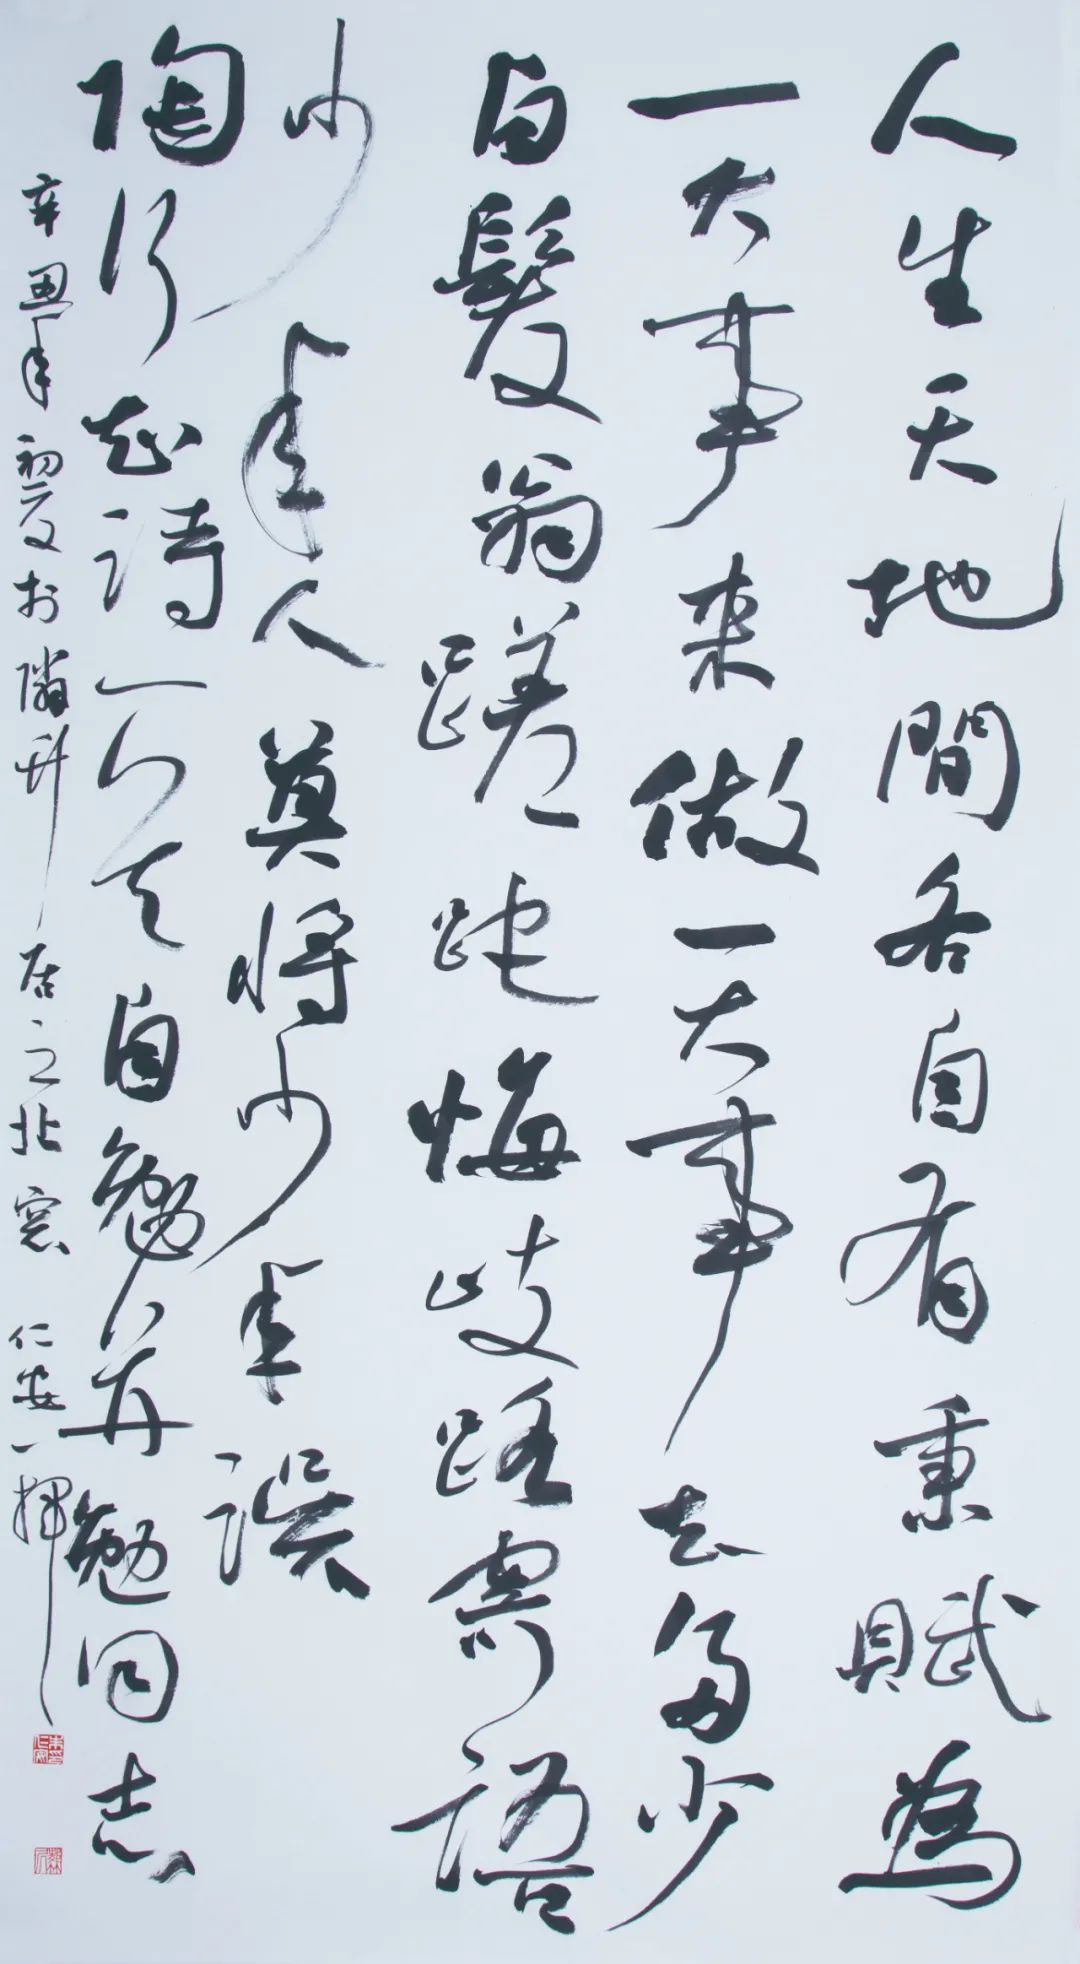 人生天地間各自有秉賦為
一大事来做一大事去多少
白髮翁蹉跎悔歧路寄語
少年人莫將少年誤
陶行知詩一自勉并勉同志
辛丑年初夏於居之北窓 仁安一揮